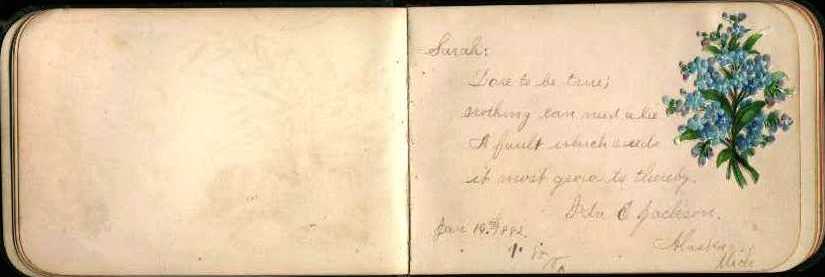 Sarah:
Dare to be true;
nothing can need a lie
A fault which needs
it most grows to thereby.
E Jackson.
Jan 19. 1882.
Alaska
Mich